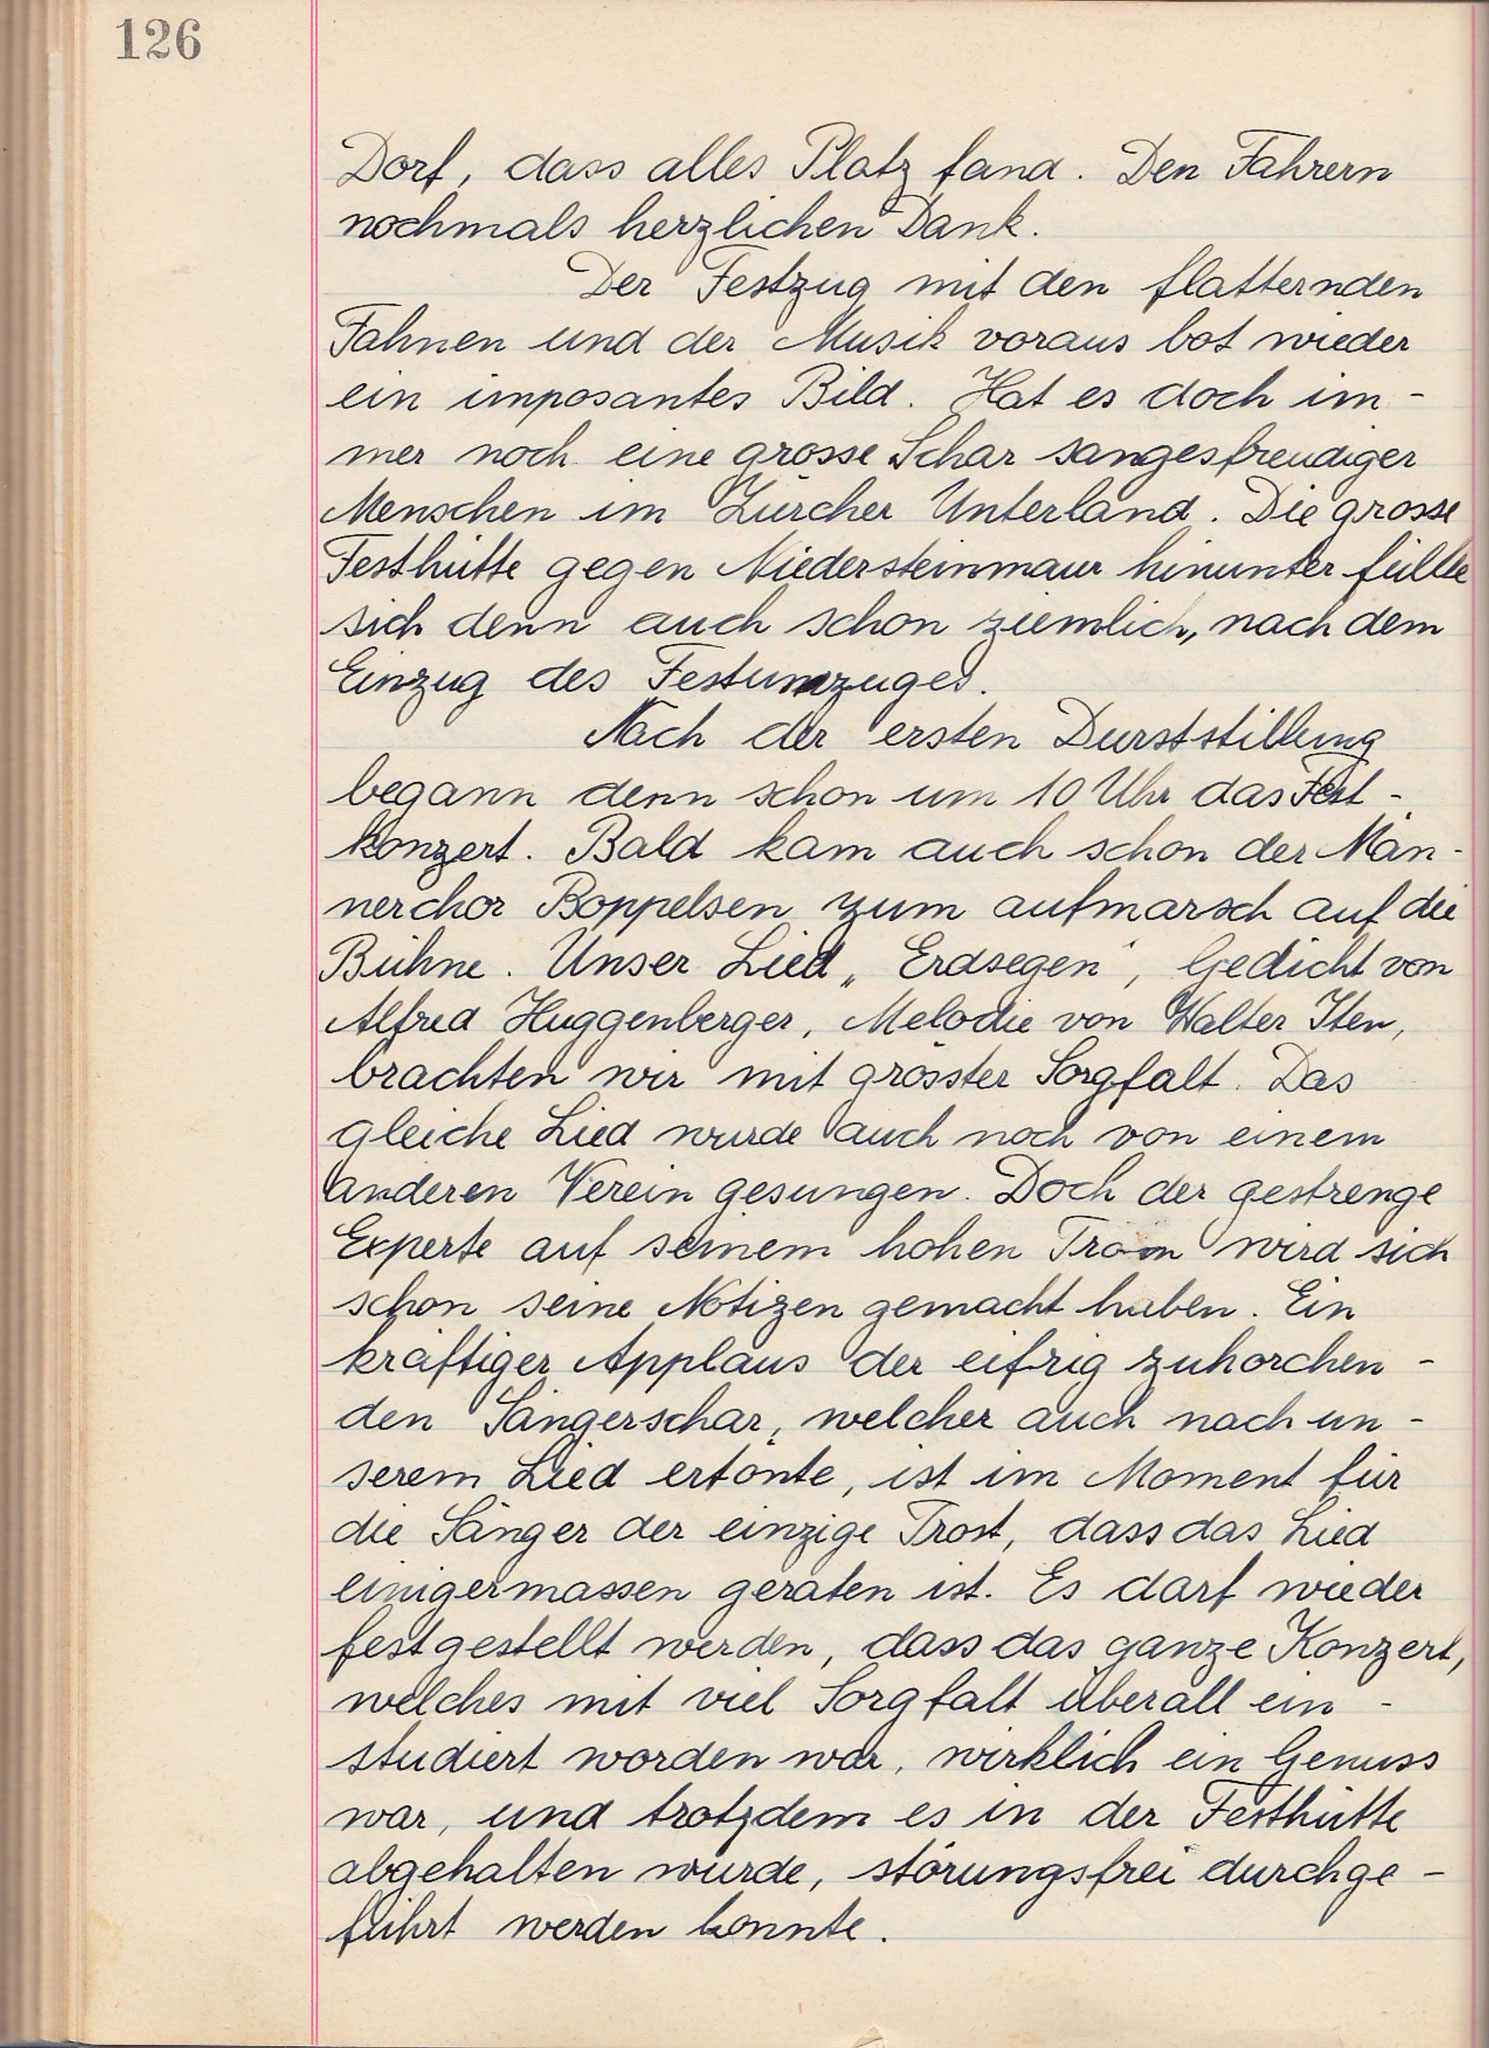 126
Dorf, dass alles Platz fand. Den Fahrern
nochmals herzlichen Dank.
Der Festzug mit den flatternden
Fahnen und der Musik voraus bot wieder
ein imposantes Bild. Hat es doch im-
mer noch eine grosse Schar sangesfreudiger
Menschen im Zürcher Unterland. Die grosse
Festhütte gegen Niedersteinmaur hinunter füllte
sich denn auch schon ziemlich, nach dem
Einzug des Festumzuges.
Nach der ersten Durststillung
begann denn schon um 10 Uhr das Fest-
konzert. Bald kam auch schon der Män-
nerchor Boppelsen zum aufmarsch auf die
Bühne. Unser Lied „Erdsegen", Gedicht von
Alfred Huggenberger, Melodie von Walter Iten,
brachten wir mit grösster Sorgfalt. Das
gleiche Lied wurde auch noch von einem
anderen Verein gesungen. Doch der gestrenge
Experte auf seinem hohen Tron wird sich
schon seine Notizen gemacht haben. Ein
kräftiger Applaus der eifrig zuhorchen-
den Sängerschar, welcher auch nach un-
serem Lied ertönte, ist im Moment für
die Sänger der einzige Trost, dass das Lied
einigermassen geraten ist. Es darf wieder
festgestellt werden, dass das ganze Konzert,
welches mit viel Sorgfalt überall ein-
studiert worden war, wirklich ein Genuss
war, und trotzdem es in der Festhütte
abgehalten wurde, störungsfrei durchge-
führt werden konnte.